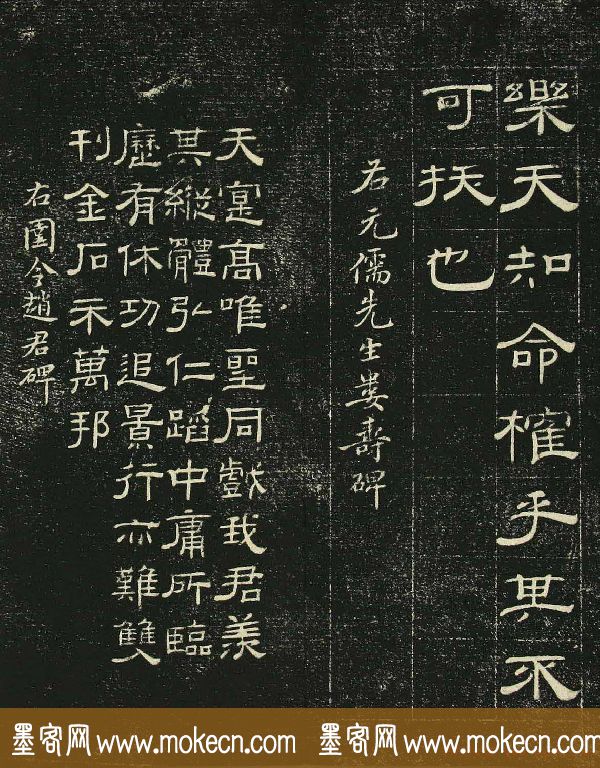 樂天知命榷乎其不
可扷也
右元儒先生婁壽碑
天寔高唯聖同戲我君羡
其縱體弘仁蹈中庸所臨
歷有休功追景行亦難雙
刊金石示萬邦
右圉令趙君碑
墨客网 www.mokecn.com 墨客网 www.mokecn.com